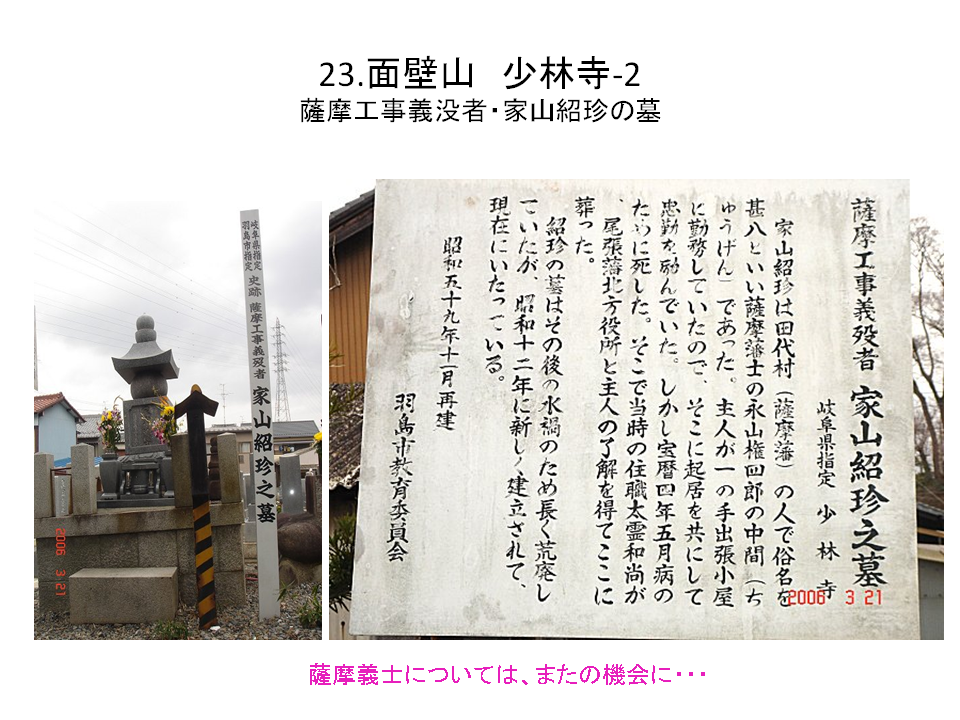 23.面壁山　少林寺-2
薩摩工事義没者・家山紹珍の墓
岐阜県指定
羽島市指定
史跡 薩摩工事義歿者 家山紹珍之墓
2006 3 21
薩摩工事義歿者 家山紹珍之墓
岐阜県指定 少林寺
家山紹珍は田代村（薩摩藩）の人で俗名を
甚八といい薩摩藩士の永山権四郎の中間（ち
ゅうげん）であった。主人が一の手出張小屋
に勤務していたので、そこに起居を共にして
忠勤を励んでいた。しかし宝暦四年五月病の
ために死した。そこで当時の住職太霊和尚が
、尾張藩北方役所と主人の了解を得てここに
葬った。
紹珍の墓はその後の水禍のため長く荒廃し
ていたが、昭和十二年に新しく建立されて、
現在にいたっている。
昭和五十九年十一月再建
羽島市教育委員会
2006 3 21
薩摩義士については、またの機会に・・・